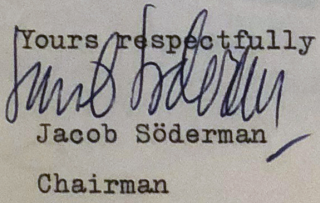 Yours respectfully
Jacob Söderman
Jacob Söderman
Chairman